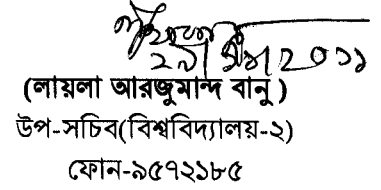 (লায়লা আরজুমান্দ বানু )
উপ-সচিব(বিশ্ববিদ্যালয়-২)
ফোন-৯৫৭২১৮৫